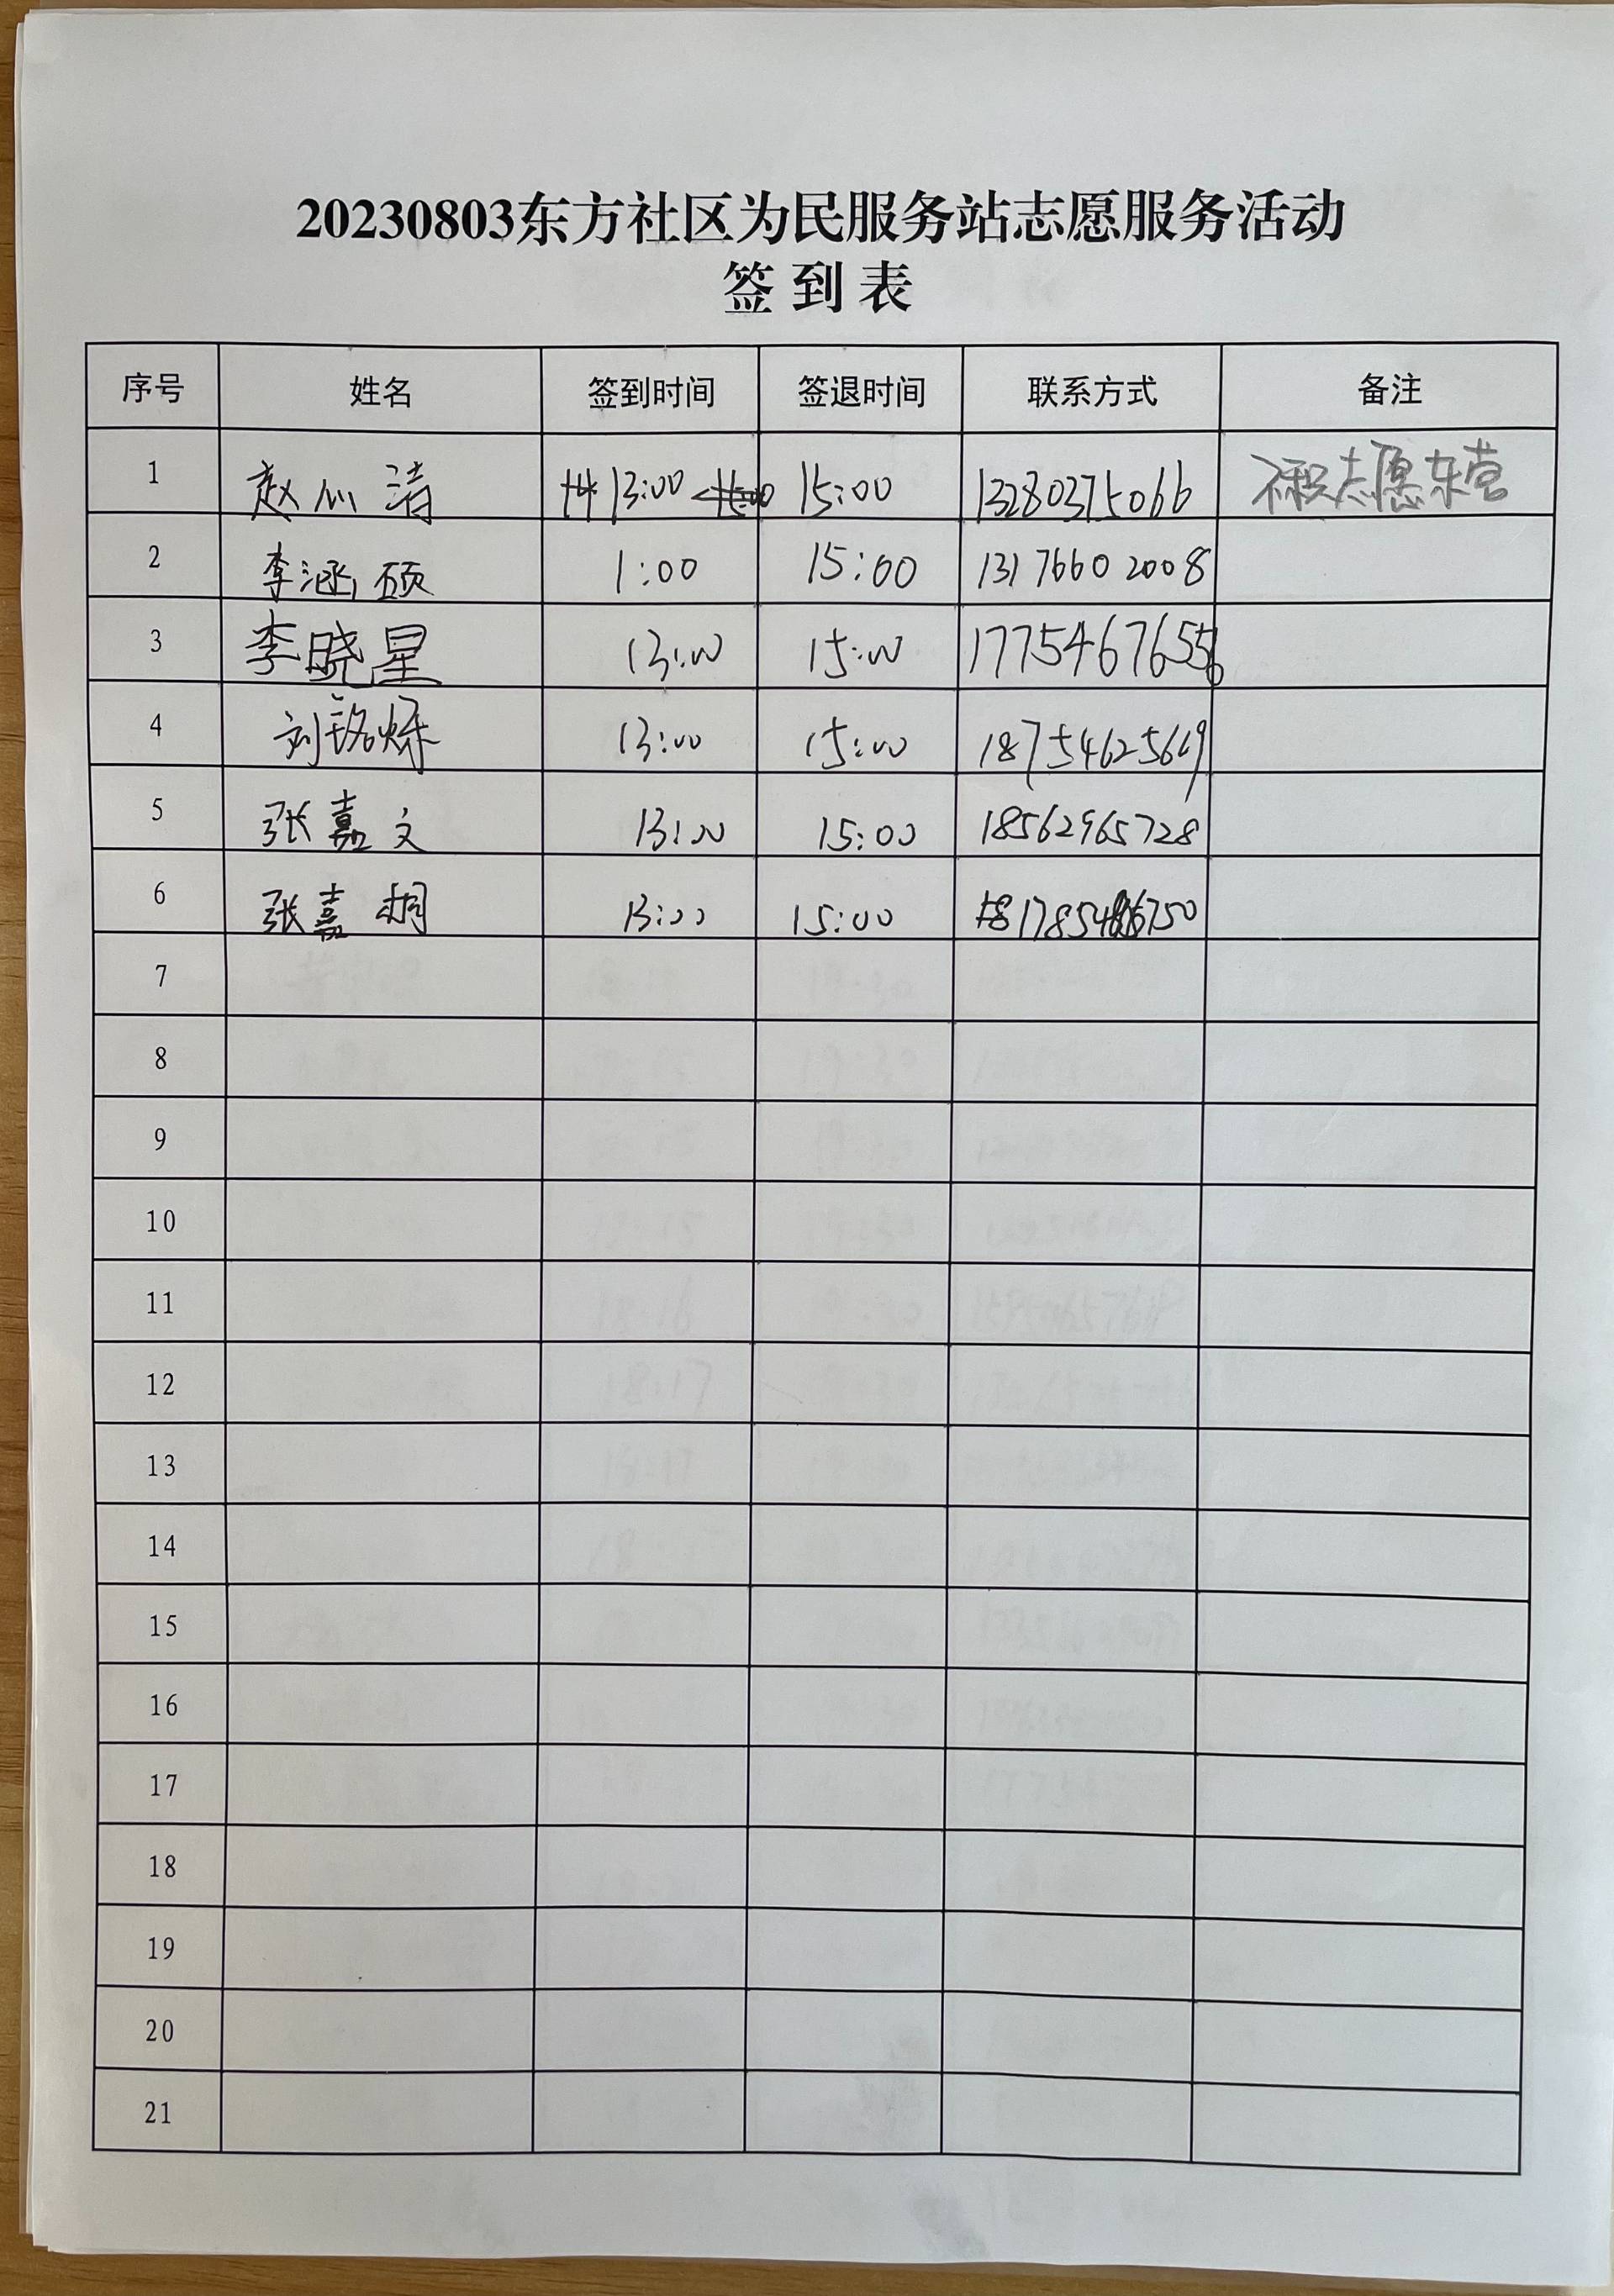 20230803东方社区为民服务站志愿服务活动
签到表
序号 姓名 签到时间 签退时间 联系方式 备注
1 赵心清 13:00 15:00 13280375066 志愿东营
2 李涵硕 1:00 15:00 13176602008
3 李晓星 13:00 15:00 17754676556
4 刘铭烁 13:00 15:00 18754625619
5 张嘉文 13:00 15:00 18562965728
6 张嘉桐 13:00 15:00
7
8
9
10
11
12
13
14
15
16
17
18
19
20
21